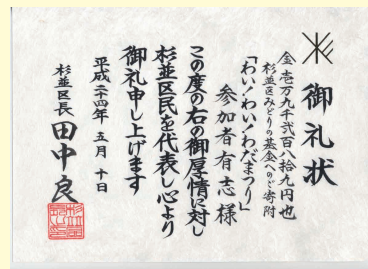 御礼状
金壱万九千弐百八拾九円也
杉並区みどりの基金へのご寄附
「わい!わい!わだまつり」
参加者有志様
この度の右の御厚情に対し
杉並区民を代表し心より
御礼申し上げます
平成二十四年 五月 十日
杉並区長 田中良